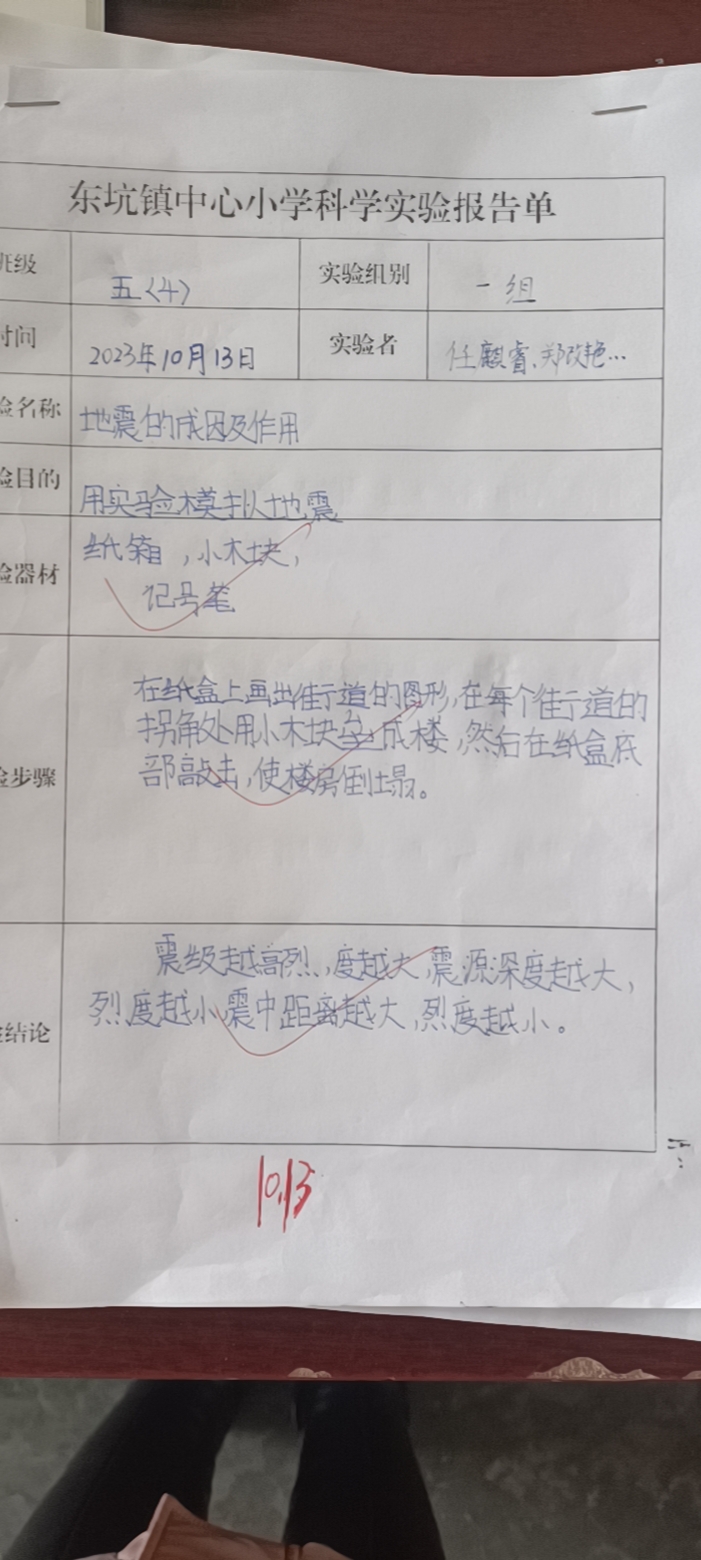 东坑镇中心小学科学实验报告单
班级 五〈4〉 实验组别 一组
时间 2023年10月13日 实验者 任麒睿、郑改艳…
验名称 地震的成因及作用
验目的 用实验模拟地震
验器材 纸箱，小木块，
记号笔
验步骤 在纸盒上画出街道的图形,在每个街道的
拐角处用小木块垒成楼,然后在纸盒底
部敲击,使楼房倒塌。
验结论 震级越高烈,度越大,震源深度越大,
烈度越小,震中距离越大,烈度越小。
10.13